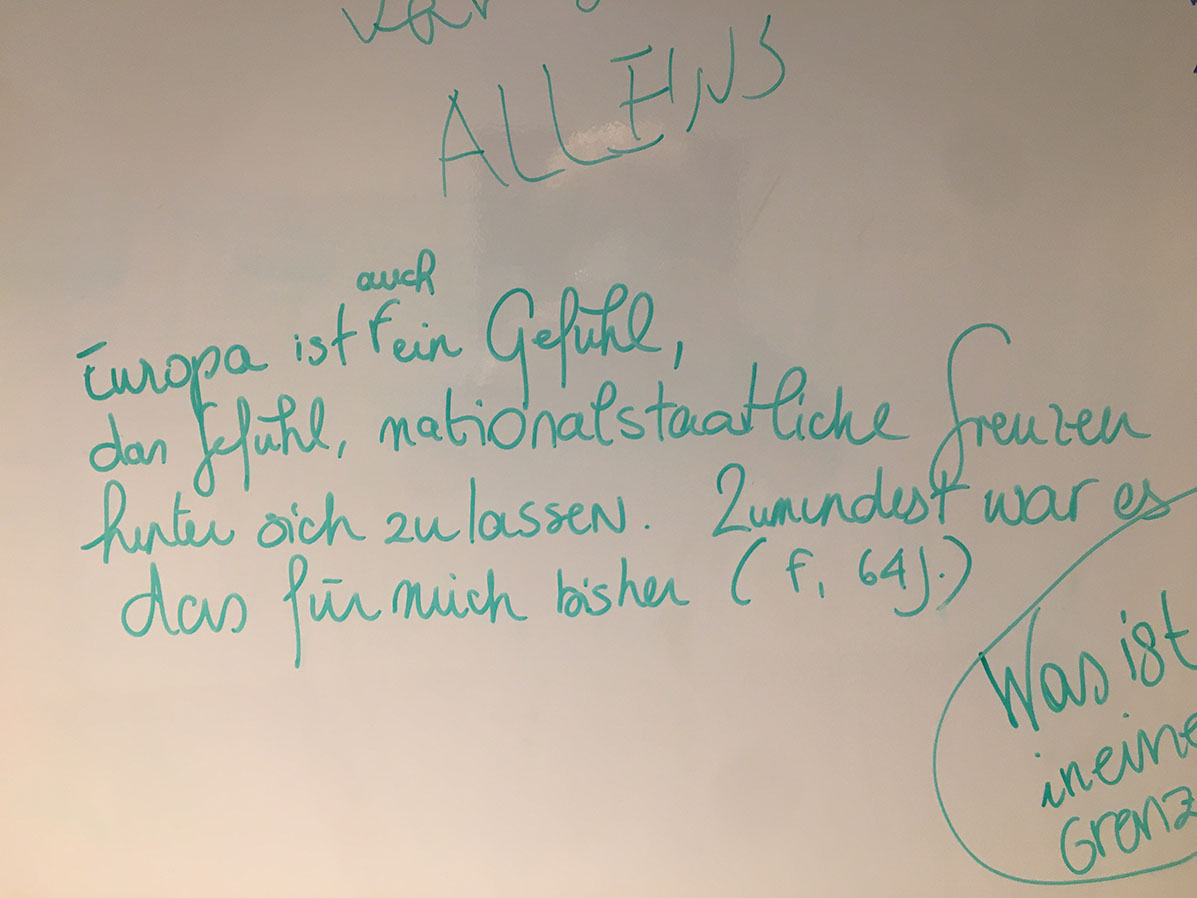 ALLEINS
auch
Europa ist ein Gefühl,
das Gefühl, nationalstaatliche Grenzen
hinter sich zu lassen. Zumindest war es
das für mich bisher (f, 64J.)
Was ist
in eine
Grenz